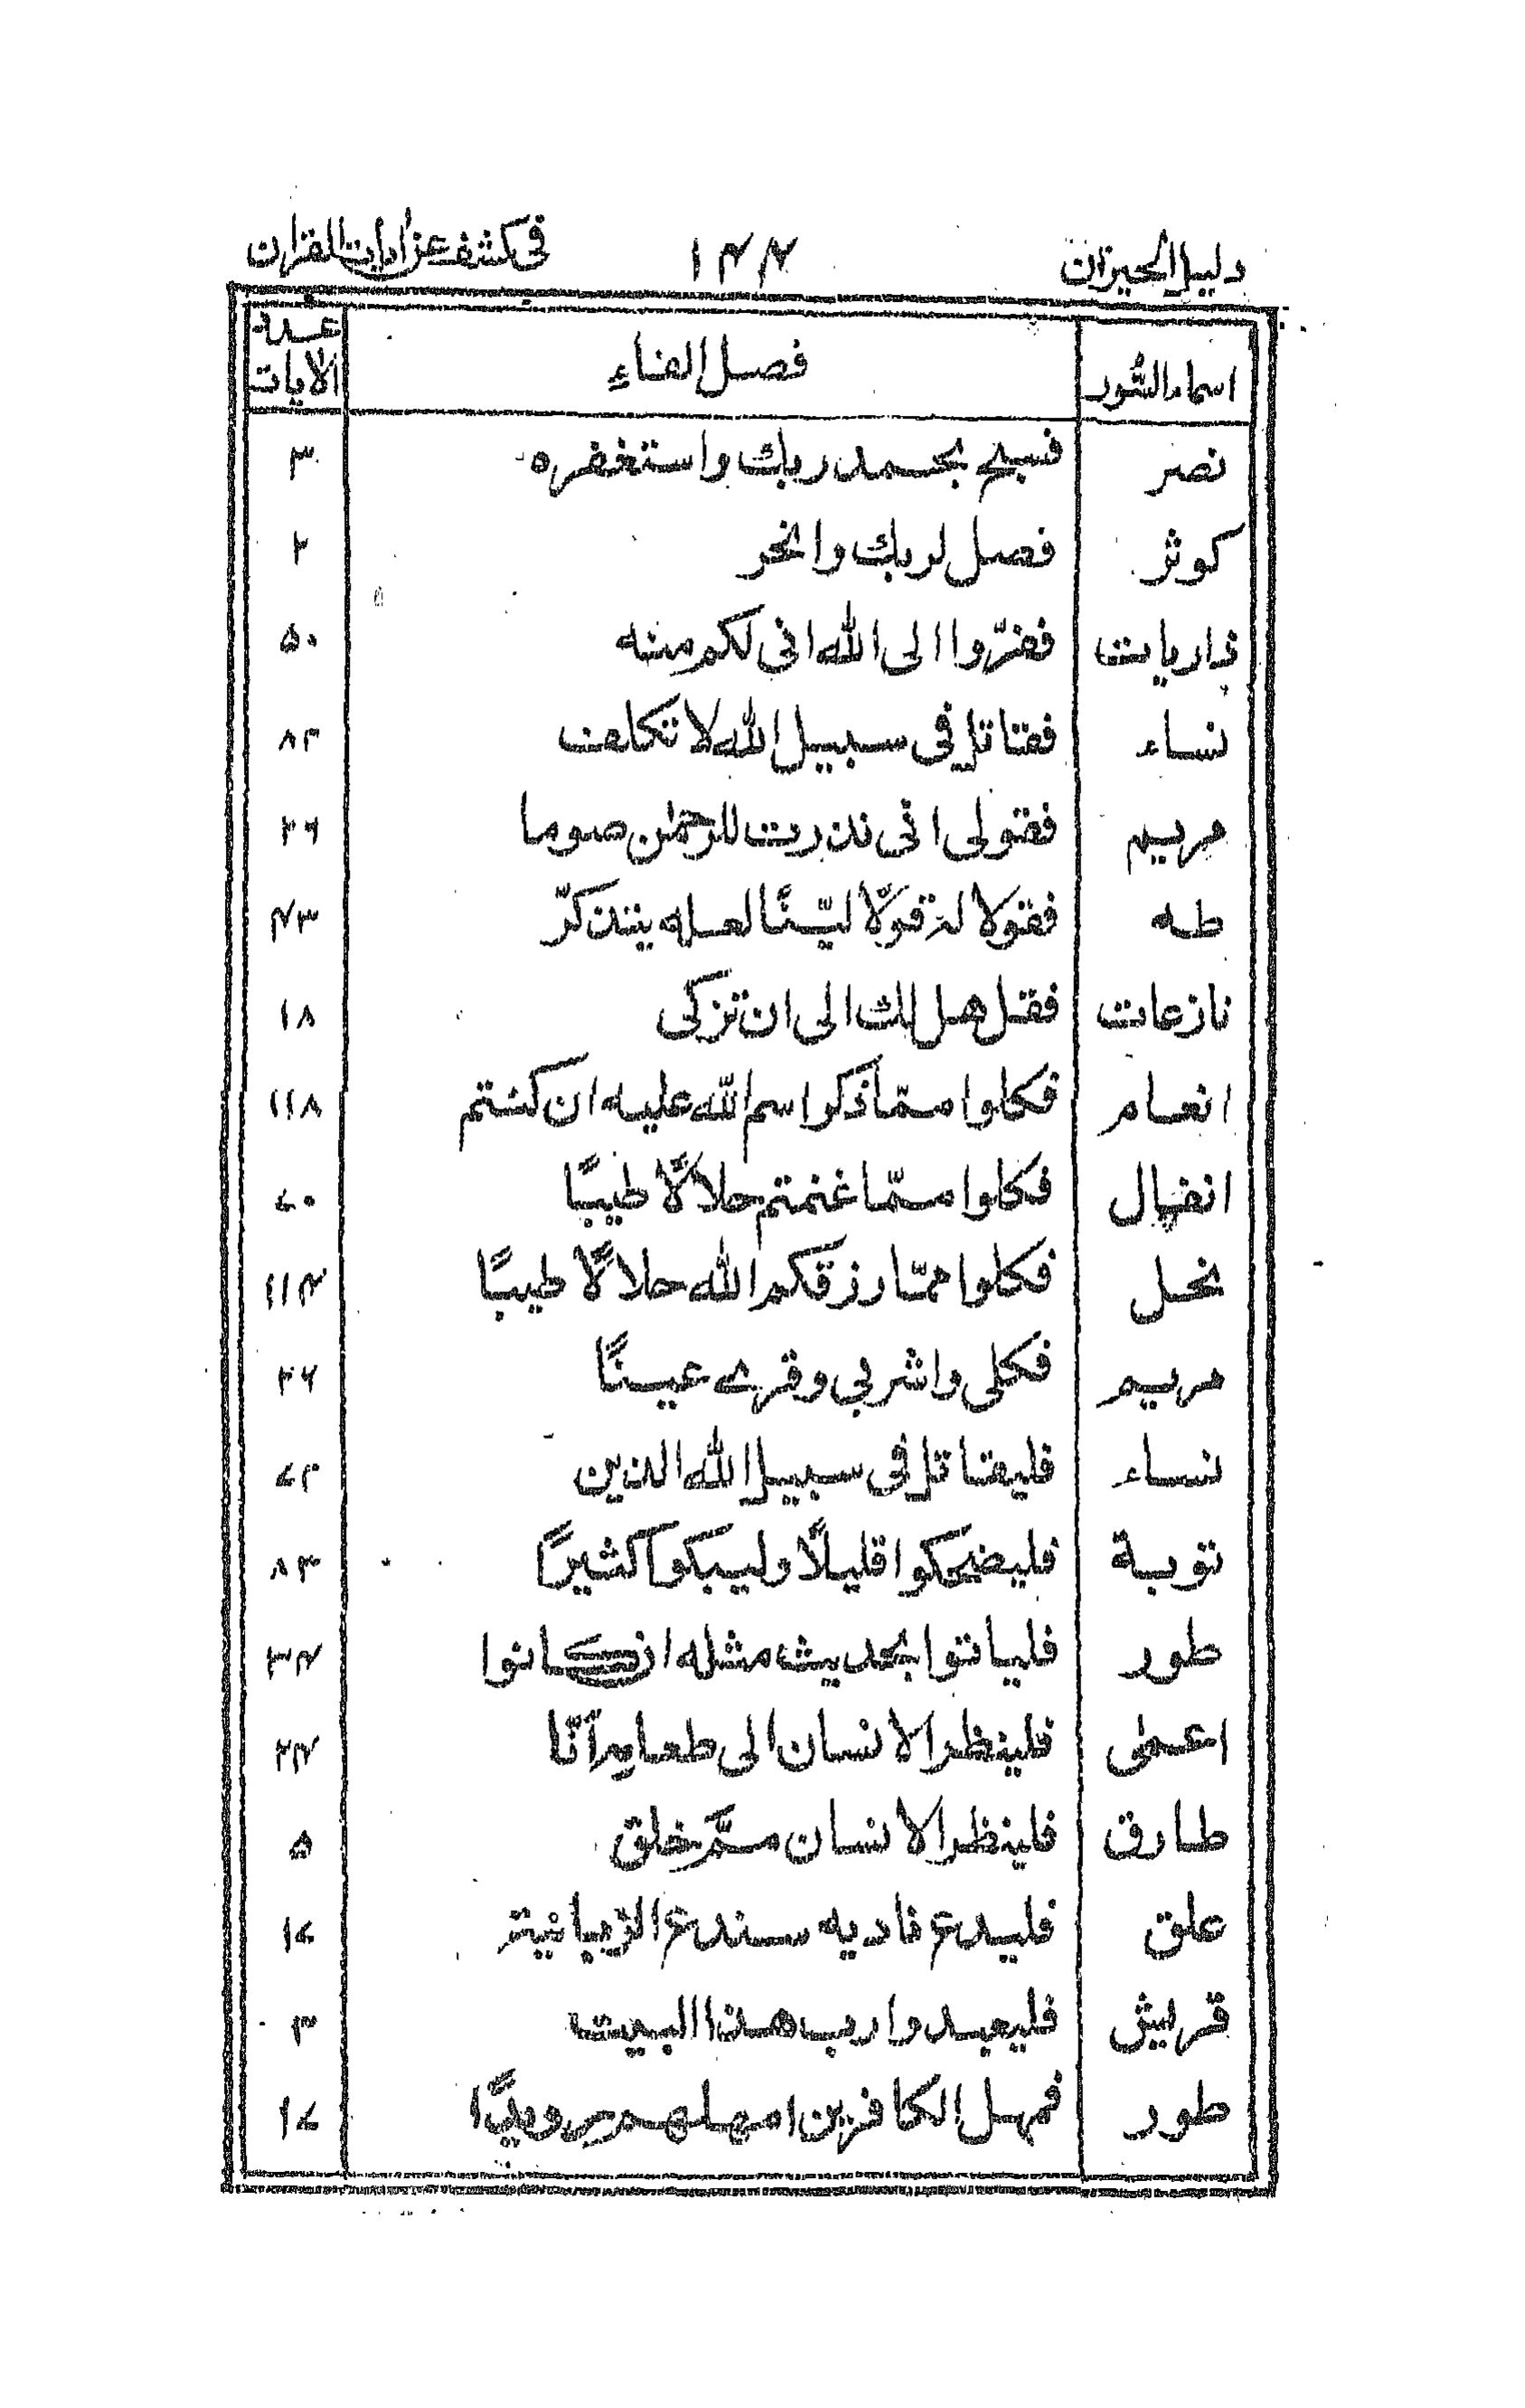 دليل الحيران ١٤٤ في كشف عن ايات القران
اسماء السور فصل الفاء عدة الايات
نصر فسبح بحمد ربك واستغفره ٣
كوثر فصل لربك وانحر ٢
ذاريات ففرّوا الى الله انى لكم منه ۵۰
نساء فقاتل فى سبيل الله لا تكلف ٨٣
مريم فقولى انى نذرت للرحمٰن صوما ٢٦
طه فقولا له قولًا ليّنًا لعله يتذكرّ ٤٣
نازعات فقل هل لك الى ان تزكى ١٨
انعام فكلوا ممّا ذكر اسم الله عليه ان كنتم ١١٨
انفال فكلوا ممّا غنمتم حلالًا طيبًا ٧٠
نحل فكلوا ممّا رزقكم الله حلالًا طيبًا ١١٤
مريم فكلى واشربى وقرى عينًا ٢٦
نساء فليقاتل فى سبيل الله الذين ٧٣
توبة فليضحكوا قليلًا وليبكوا كثيرًا ٨٣
طور فلياتوا بحديث مثله ان كانوا ٣٤
اعمٰى فلينظر الانسان الى طعامه انّا ٢٤
طارق فلينظر الانسان ممّ خلق ۵
علق فليدع ناديه سندع الزبانية ١٧
قريش فليعبدوا رب هذا البيت ٣
طور فمهل الكافرين امهلهم رويدًا ١٧